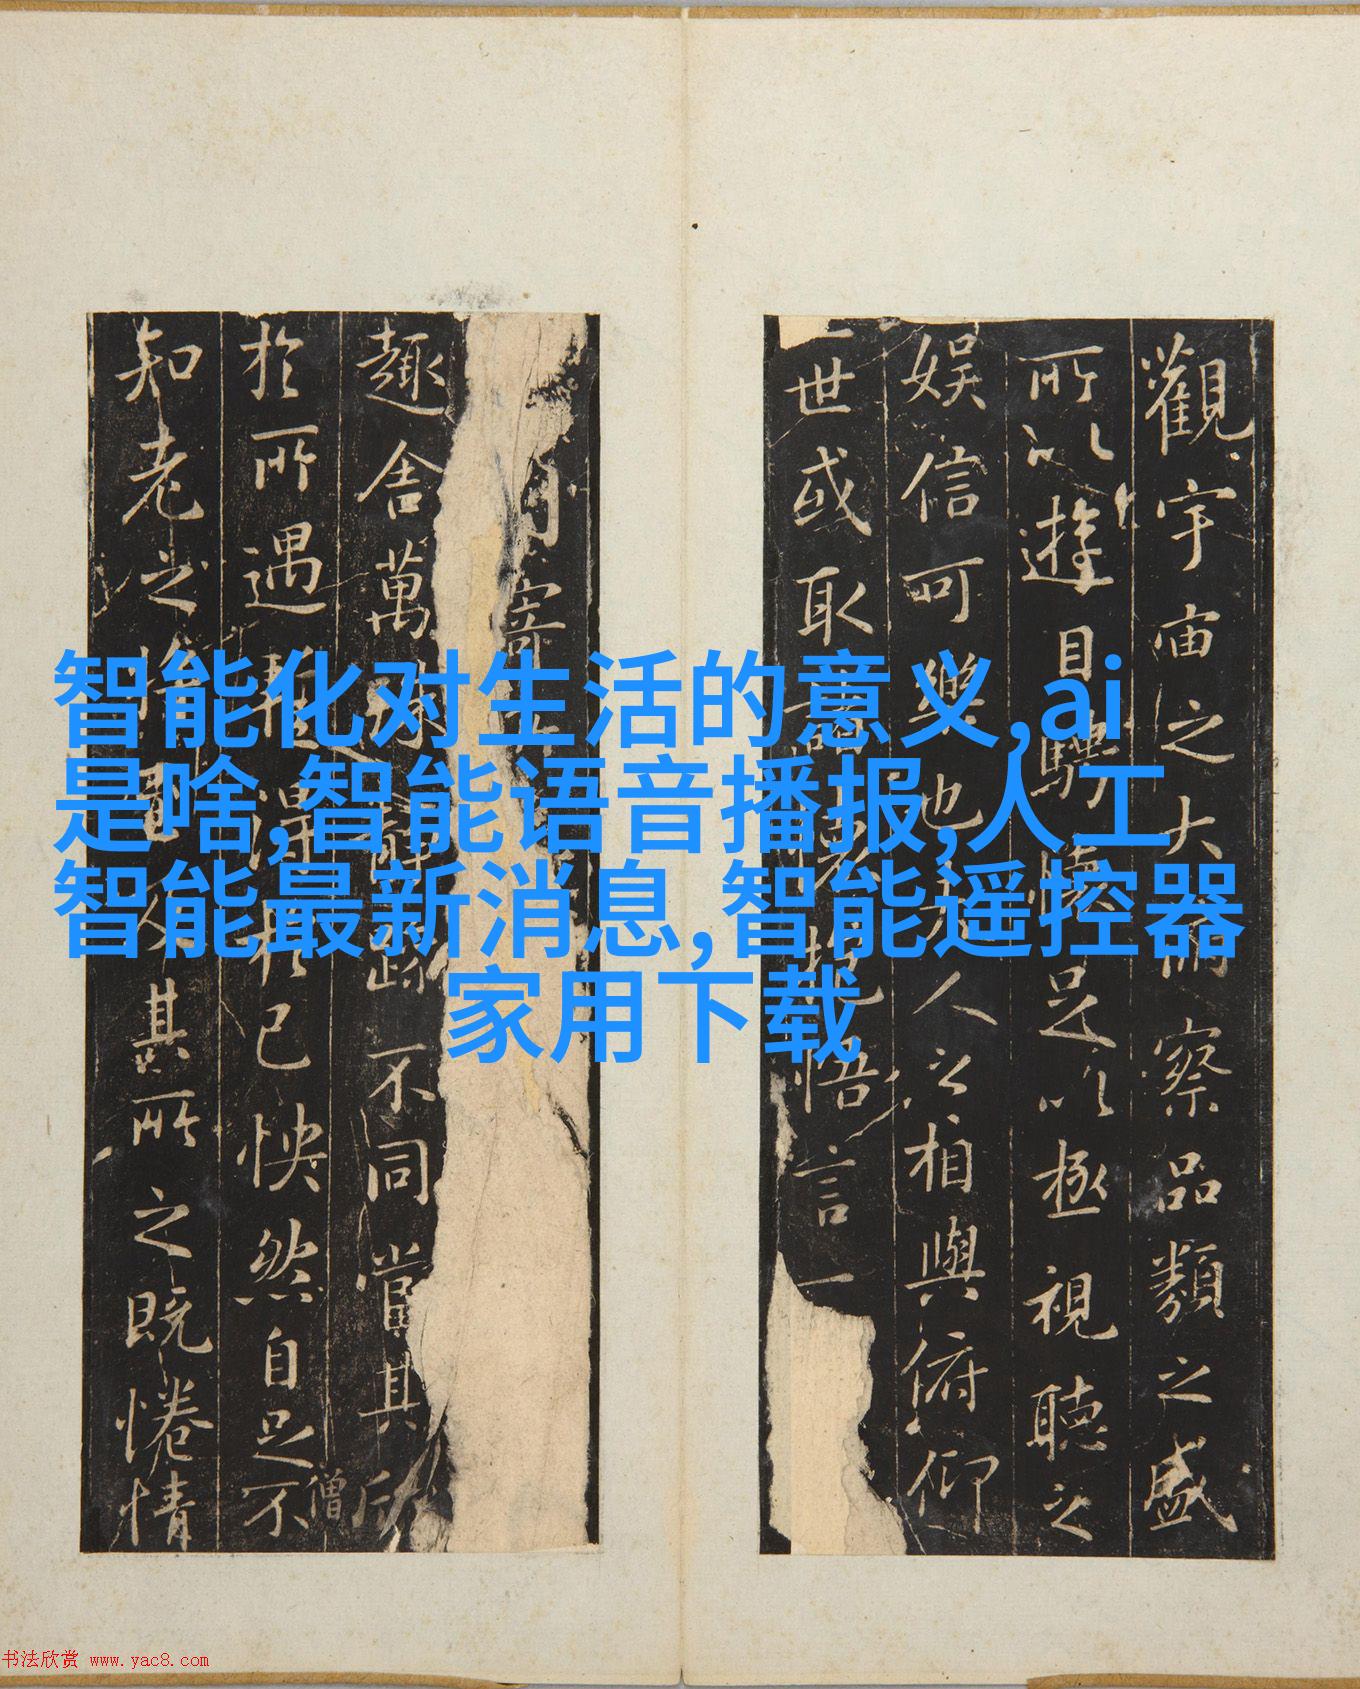 觀宇宙之大俯察品類之盛
所以遊目騁懷足以極視聽之
娛信可樂也夫人之相與俯仰
一世或取諸懷抱悟言一
寄
趣舍萬殊靜躁不同當其欣
僧
於所遇暫得於己怏然自足不
知老之將至及其所之既惓情
智能化对生活的意义,ai
是啥,智能语音播报,人工
智能最新消息,智能遥控器
家用下载
书法欣赏 www.yac8.com